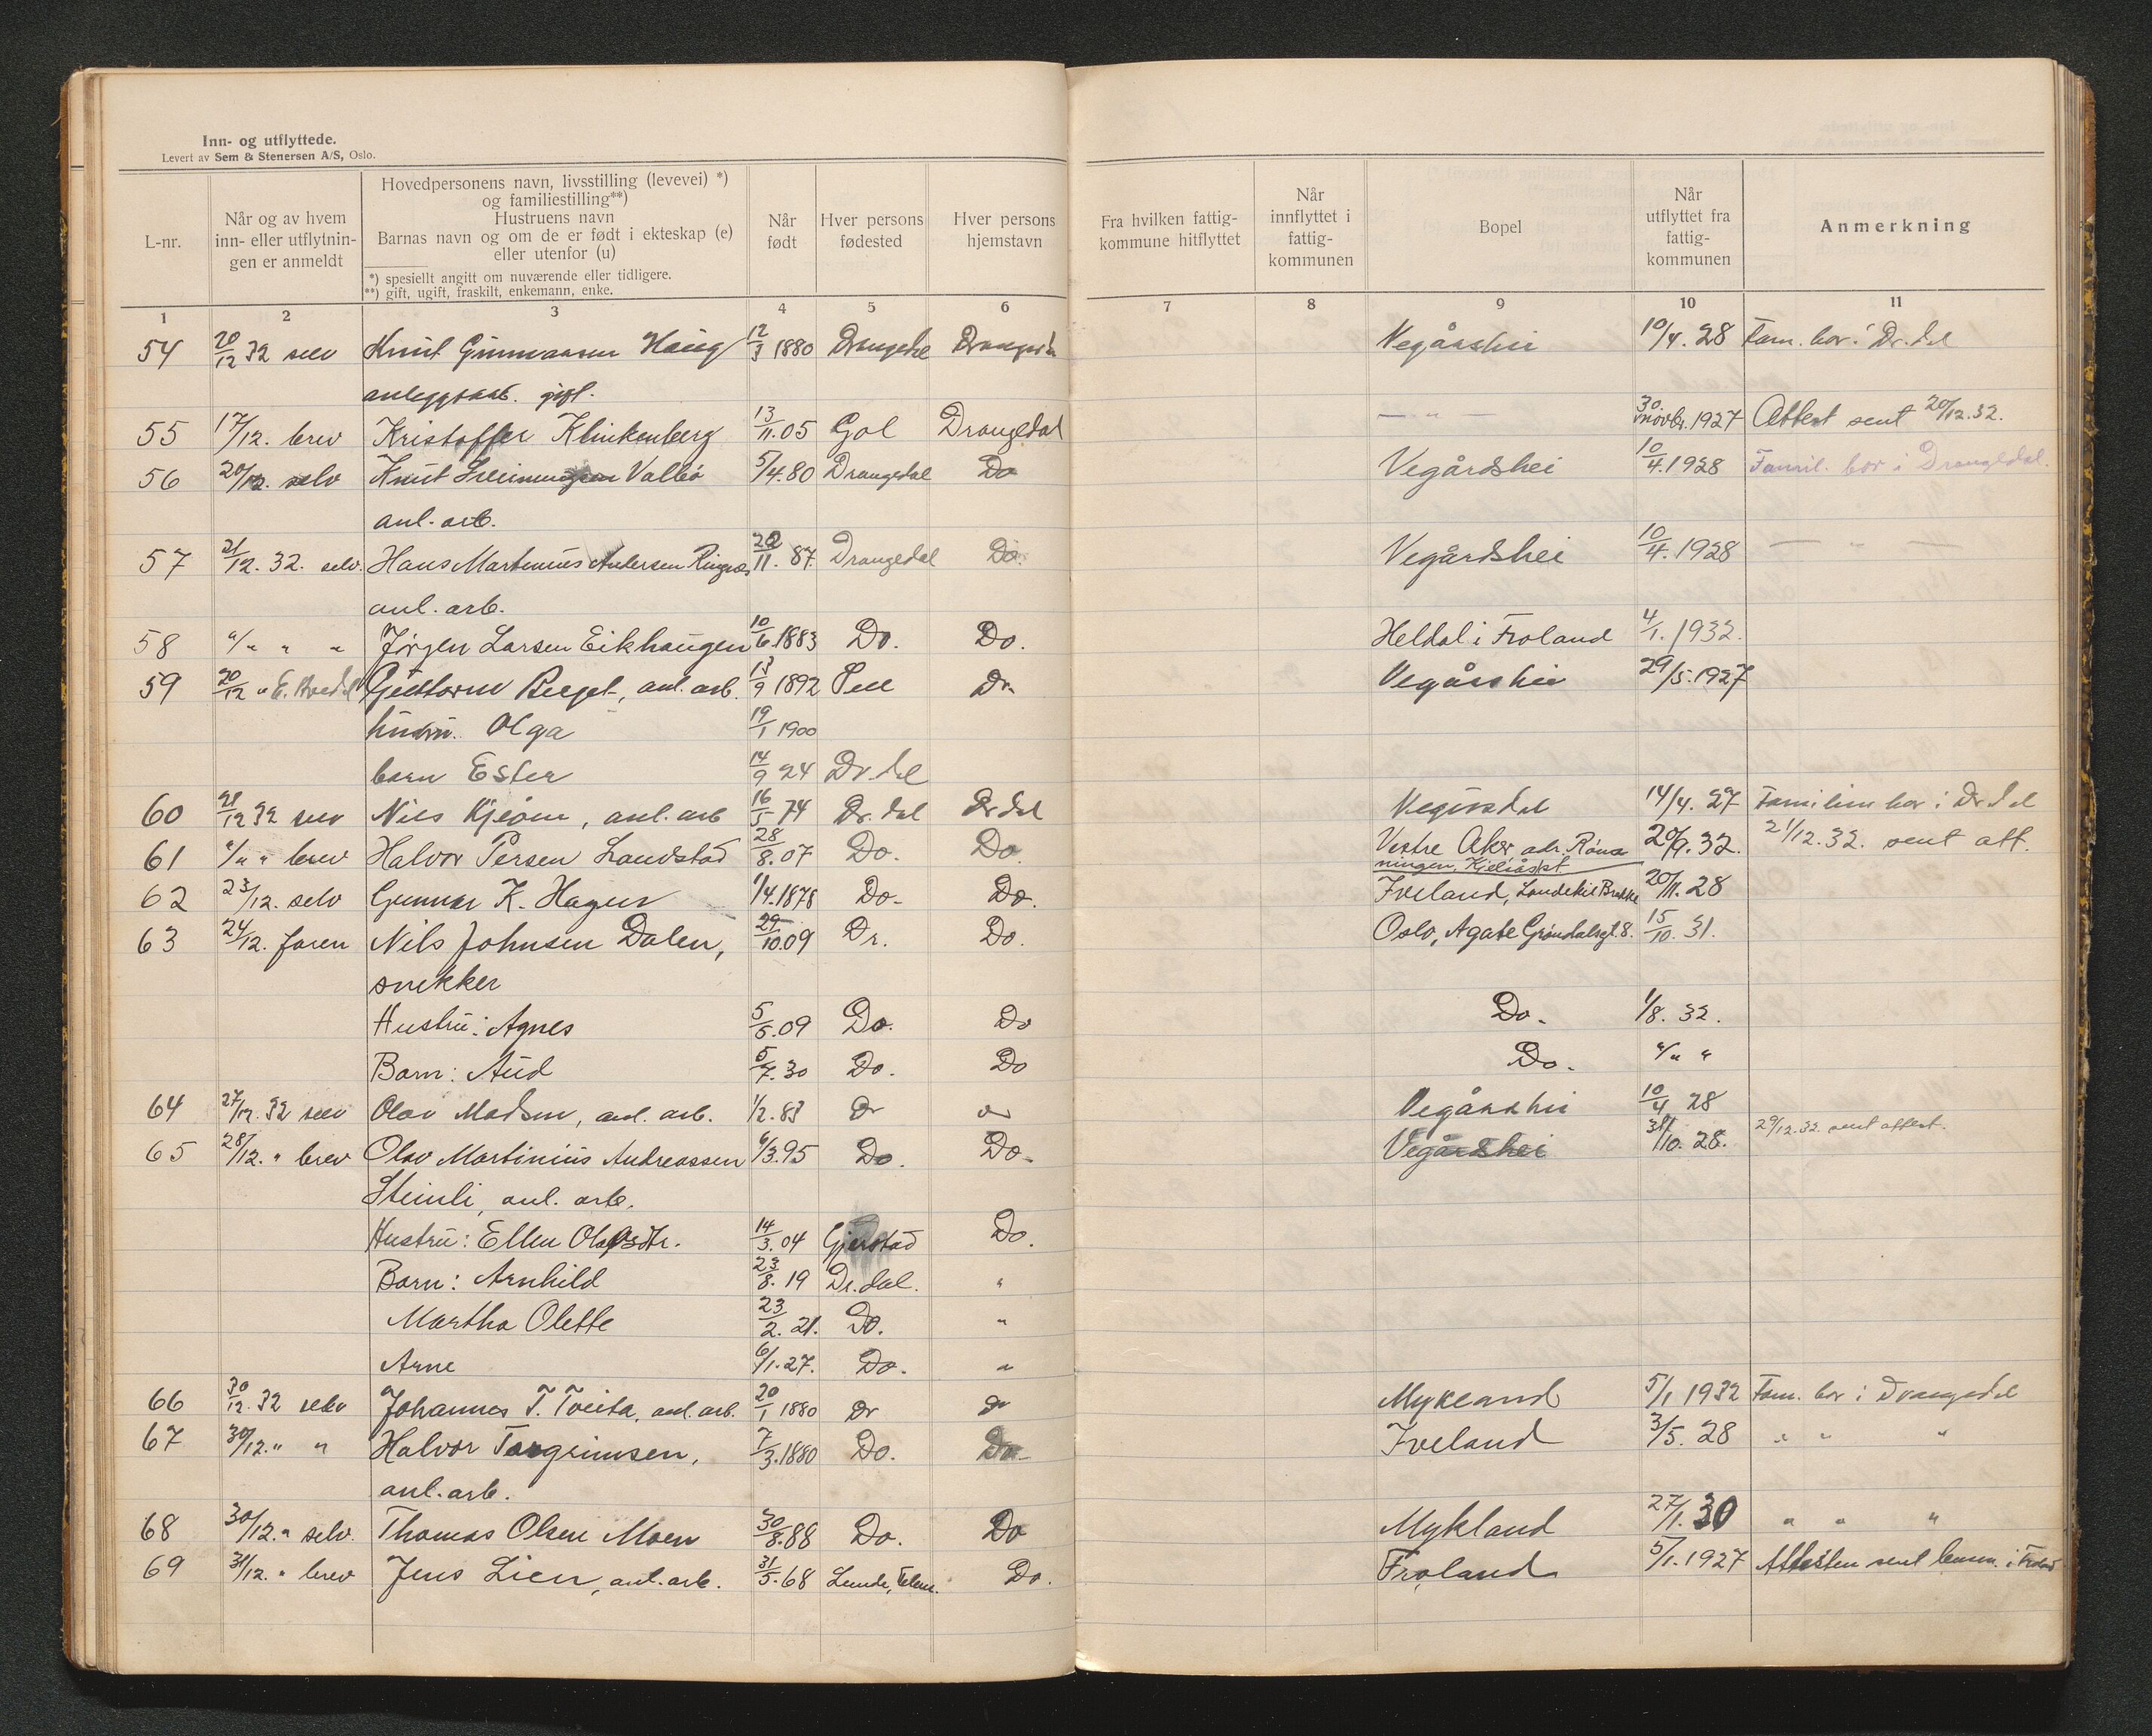 Inn- og utflyttede.
Levert av Sem & Stenersen A/S, Oslo.
L-nr.
Når og av hvem
inn- eller utflytnin-
gen er anmeldt
Hovedpersonens navn, livsstilling (levevei) *)
og familiestilling**)
Hustruens navn
Barnas navn og om de er født i ekteskap (e)
eller utenfor (u)
*) spesiellt angitt om nuværende eller tidligere.
**) gift, ugift, fraskilt, enkemann, enke.
Når
født
Hver persons
fødested
Hver persons
hjemstavn
Fra hvilken fattig-
kommune hitflyttet
Når
innflyttet i
fattig-
kommunen
Bopel
Når
utflyttet fra
fattig-
kommunen
Anmerkning
1 2 3 4 5 6 7 8 9 10 11
54 20/12 32 selv Knut Gunnarsen Haug 12/3 1880 Drangedal Drangedal Vegårshei 10/4. 28 Fam. bor i Dr.dal
anleggsarb. gift.
55 17/12. brev Kristoffer Klinkenberg 13/11.05 Gol Drangedal — " — 30 novbr. 1927 Attest sent 20/12.32.
56 20/12. selv Knut Valbø 5/4.80 Drangedal Do Vegårdshei 10/4.1928 Famil. bor i Drangedal.
anl. arb.
57 21/12. 32. selv. Hans Martinius Andersen Ringnes 20/11. 87. Drangedal Do. Vegårdshei 10/4.1928 — " —
anl. arb.
58 "/" " " Jørgen Larsen Eikhaugen 10/6.1883 Do. Do. Heldal i Froland 4/1. 1932.
59 20/12 " Guttorm Berget, anl. arb. 13/9 1892 Dr. Vegårshei 29/5.1927
hustru. Olga 19/1 1900
barn Ester 14/9 24 Dr.dal
60 21/12 32 selv Nils Kjeøin, anl. arb 16/5 74 Dr.dal Dr.dal 14/4. 27 Familien bor i Dr.dal
61 "/" " brev Halvor Persen Landstad 28/8.07 Do. Do Vestre Aker adr. Røna
ningen, 20/9. 32. 21/12.32. sent att.
62 23/12. selv Gunnar K. Hagen 1/4.1878 Do. Do. Iveland, 20/11. 28
63 24/12. faren Nils Johnsen Dalen, 29/10.09 Dr. Do. Oslo, Agate Grøndalsgt. 8. 15/10. 31.
snekker
Hustru: Agnes 5/5.09 Do. Do Do. 1/8. 32.
Barn: Aud 5/7.30 Do. Do Do. "/" "
64 27/12. 32 selv Olav Madsen, anl. arb. 1/2.83 Dr Dr Vegårshei 10/4 28
65 28/12. " brev Olav Martinius Andreassen 6/3.95 Do. Do. Vegårdshei 31/10. 28. 29/12.32. sent attest.
Steinli, anl. arb.
Hustru: Ellen Olafsdtr. 14/3.04 Gjerstad Do.
Barn: Arnhild 23/8.19 Dr.dal. "
Martha Olette 23/2. 21. Do. "
Arne 6/1.27. Do. "
66 30/12. 32 selv Johannes T. Tveita, anl. arb. 20/1 1880 Dr Dr Mykland 5/1 1932 Fam. bor i Drangedal
67 30/12. " " Halvor Torgrimsen, 7/3.1880 Do. Do. Iveland 3/5. 28 " " "
anl. arb.
68 30/12. " selv. Thomas Olsen Moen 30/8.88 Do. Do Mykland 27/1. 30 " " "
69 31/12. " brev Jens Lien, anl. arb. 31/5.68 Lunde, Telem. Do. Froland 5/1.1927 Attesten sent lensm. i Froland